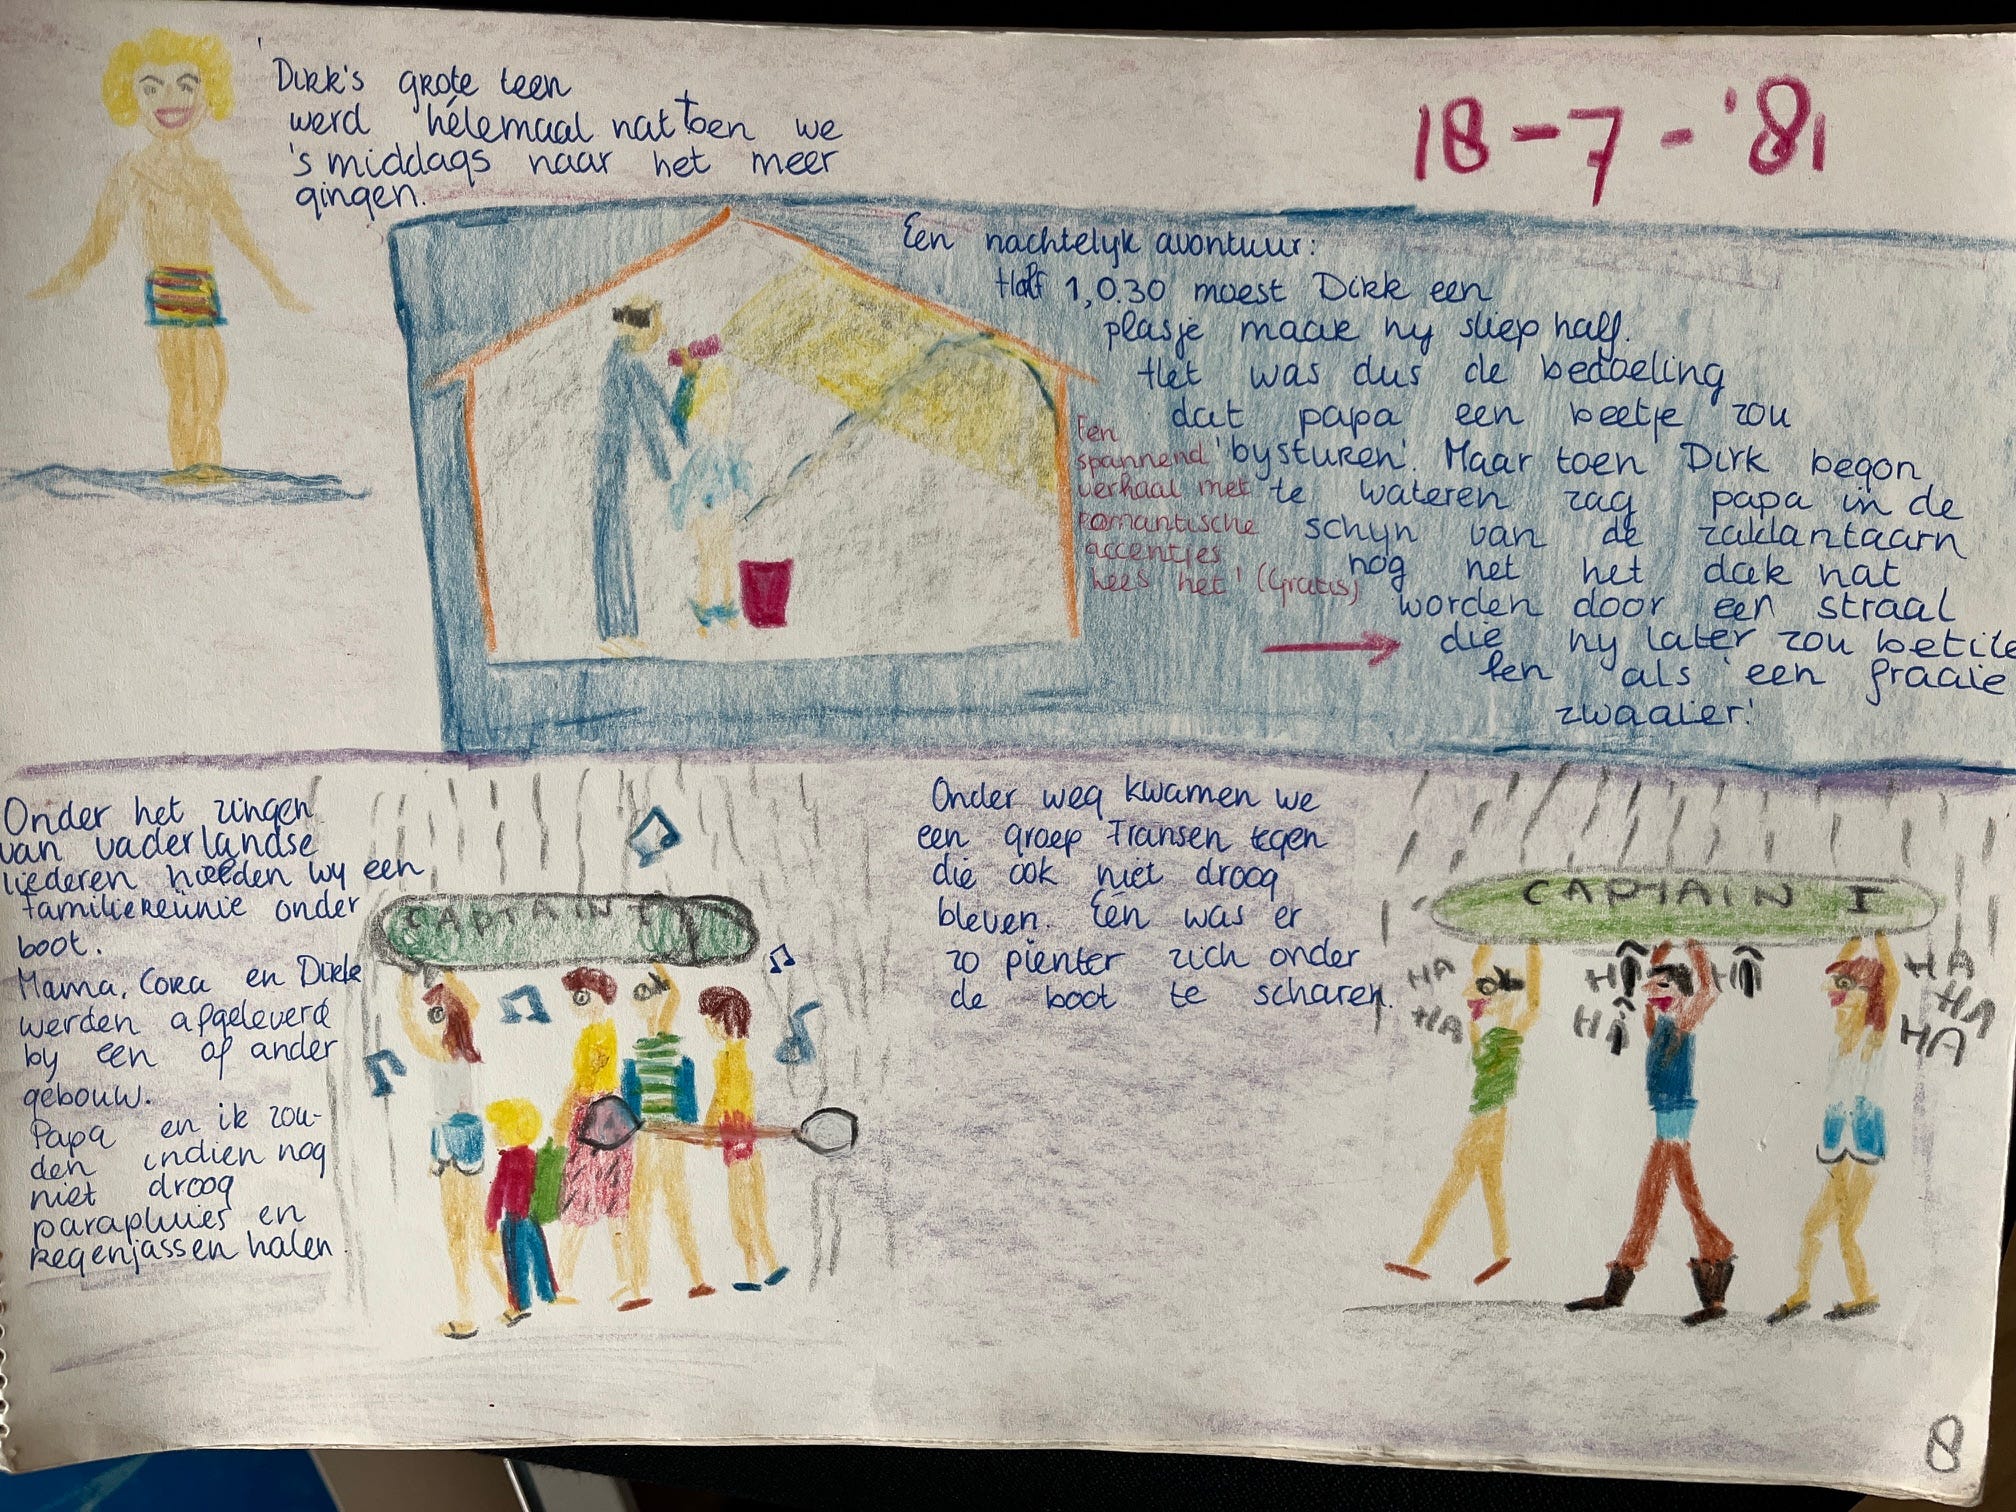 Dirk's grote teen
werd hélemaal nat toen we
's middags naar het meer
gingen.
18-7-'81
Een nachtelyk avontuur:
Half 1, 0.30 moest Dirk een
plasje maar hy sliep half.
Het was dus de bedoeling
dat papa een beetje zou
'bysturen'. Maar toen Dirk begon
te wateren zag papa in de
schyn van de zaklantaarn
nog net het dak nat
worden door een straal
die hy later zou betite
len als 'een fraaie
zwaaier!
Een
spannend
verhaal met
romantische
accentjes
Lees het! (Gratis)
Onder het zingen
van vaderlandse
liederen hielden wy een
familiereünie onder
boot.
Mama, Cora en Dirk
werden afgeleverd
by een of ander
gebouw.
Papa en ik zou-
den indien nog
niet droog
parapluies en
regenjassen halen.
CAPTAIN I
Onder weg kwamen we
een groep Fransen tegen
die ook niet droog
bleven. Een was er
zo pienter zich onder
de boot te scharen.
CAPTAIN I
HA
HA
HÎ HÎ
HÎ
HA
HA
HA
8